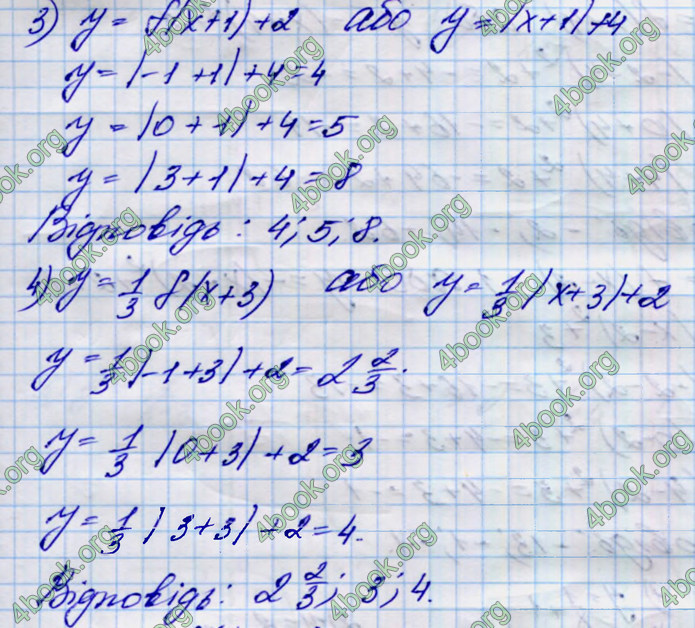 3) y = f(x+1)+2 або y = |x+1|+4
y = |-1+1|+4=4
y = |0+1|+4=5
y = |3+1|+4=8
Відповідь: 4; 5; 8.
4) y = 1/3 f(x+3) або y = 1/3 |x+3|+2
y = 1/3 |-1+3|+2 = 2 2/3.
y = 1/3 |0+3|+2=3
y = 1/3 |3+3|+2=4.
Відповідь: 2 2/3; 3; 4.
4book.org